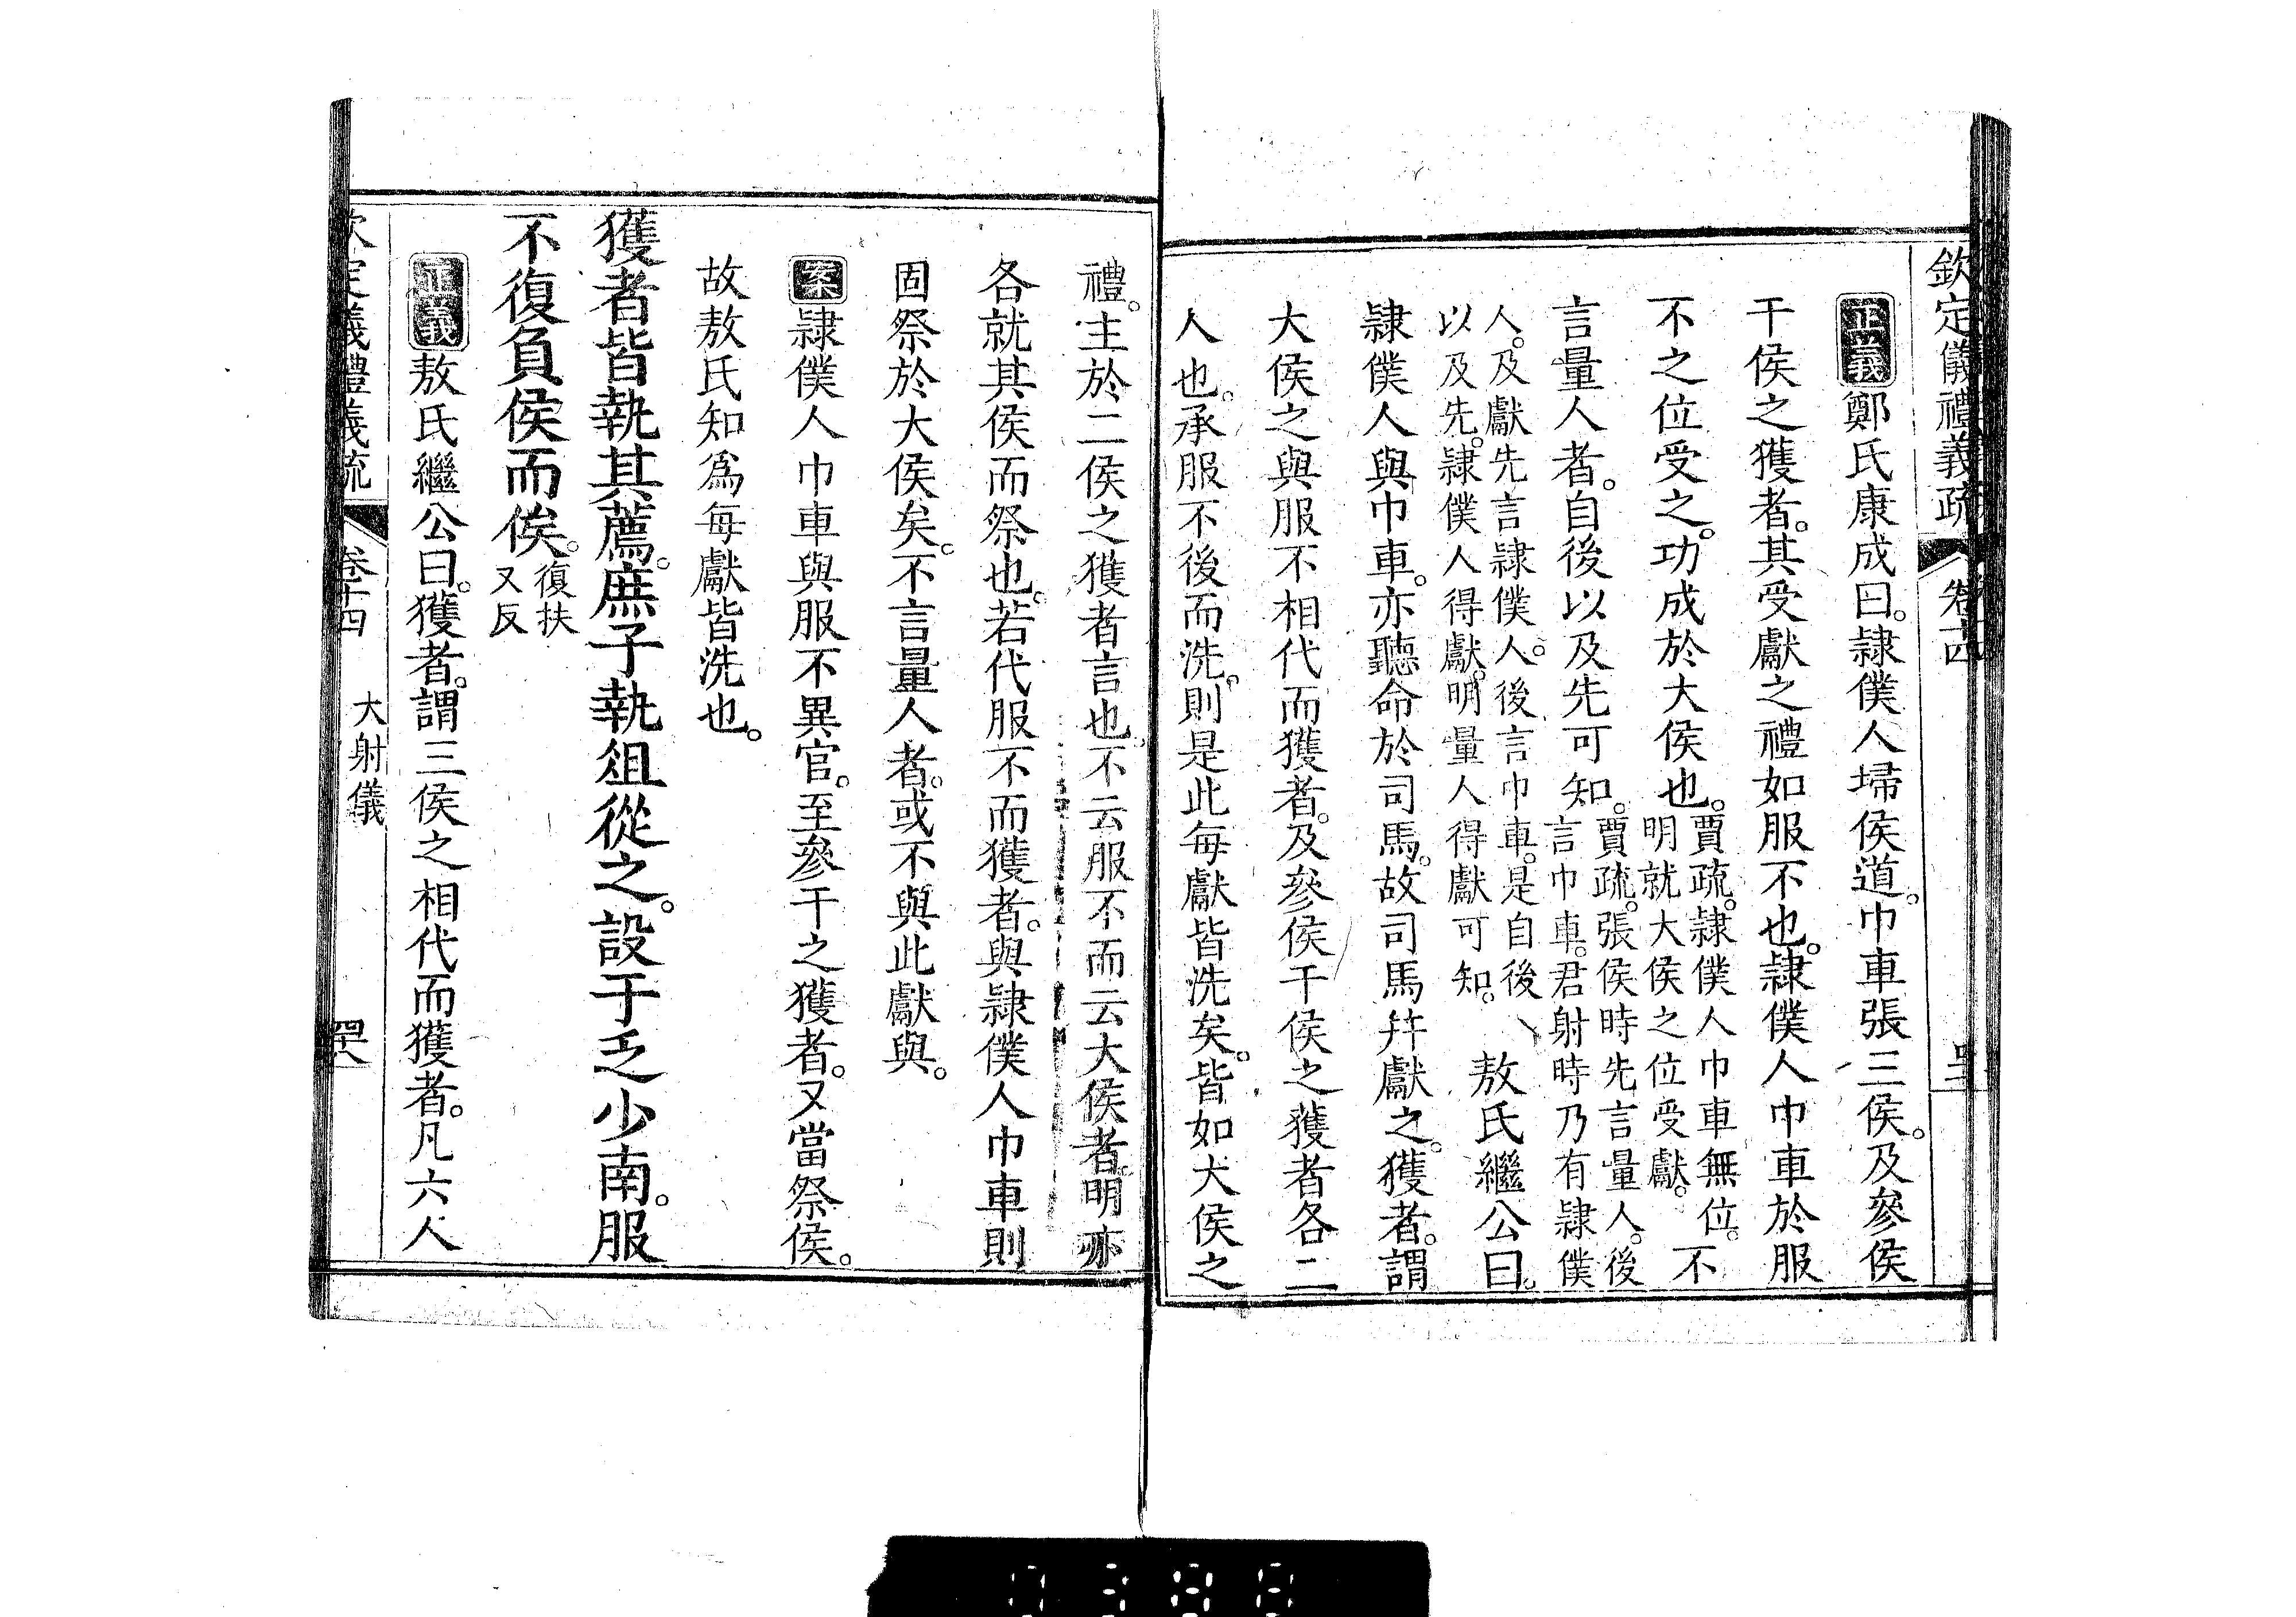 欽定儀禮義疏 卷十四
正義鄭氏康成曰。隷僕人埽侯道。巾車張三侯。及參侯
干侯之獲者。其受獻之禮如服不也。隷僕人巾車於服
不之位受之。功成於大侯也。賈疏。隷僕人巾車無位。明就大侯之位受獻。不
言量人者。自後以及先可知。賈疏。張侯時先言量人。後言巾車。君射時乃有隷僕
人。及獻先言隷僕人。後言巾車。是自後以及先。隷僕人得獻。明量人得獻可知。 敖氏繼公曰。
隷僕人與巾車。亦聽命於司馬。故司馬幷獻之。獲者。謂
大侯之與服不相代而獲者。及參侯干侯之獲者各二
人也。承服不後而洗。則是此每獻皆洗矣。皆如大侯之
禮。主於二侯之獲者言也。不云服不而云大侯者。明亦
各就其侯而祭也。若代服不而獲者。與隷僕人巾車則
固祭於大侯矣。不言量人者。或不與此獻與。
案隷僕人巾車與服不異官。至參干之獲者。又當祭侯。
故敖氏知爲每獻皆洗也。
獲者皆執其薦。庶子執俎從之。設于乏少南。服
不復負侯而俟。復扶又反
正義敖氏繼公曰。獲者。謂三侯之相代而獲者。凡六人
欽定儀禮義疏 卷十四 大射儀